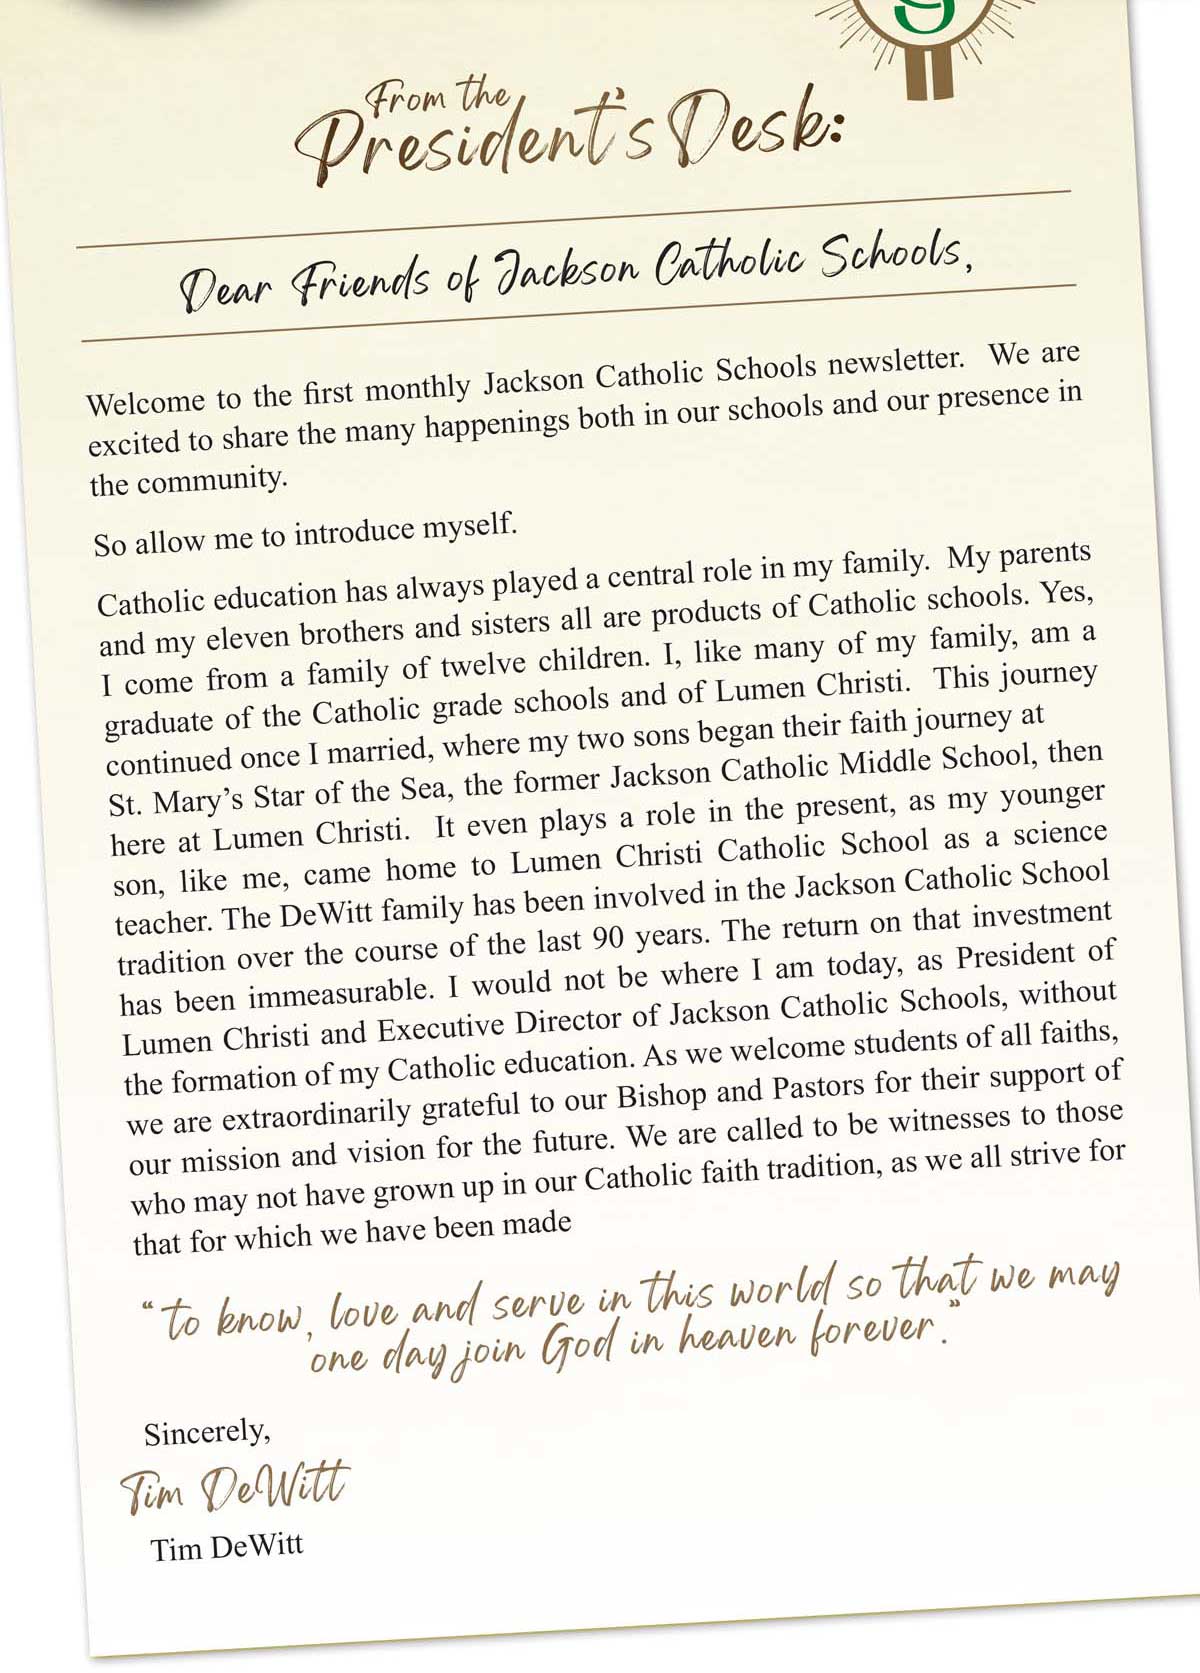 From the
President's Desk:
Dear Friends of Jackson Catholic Schools,
Welcome to the first monthly Jackson Catholic Schools newsletter.  We are
excited to share the many happenings both in our schools and our presence in
the community.
So allow me to introduce myself.
Catholic education has always played a central role in my family.  My parents
and my eleven brothers and sisters all are products of Catholic schools. Yes,
I come from a family of twelve children. I, like many of my family, am a
graduate of the Catholic grade schools and of Lumen Christi.  This journey
continued once I married, where my two sons began their faith journey at
St. Mary’s Star of the Sea, the former Jackson Catholic Middle School, then
here at Lumen Christi.  It even plays a role in the present, as my younger
son, like me, came home to Lumen Christi Catholic School as a science
teacher. The DeWitt family has been involved in the Jackson Catholic School
tradition over the course of the last 90 years. The return on that investment
has been immeasurable. I would not be where I am today, as President of
Lumen Christi and Executive Director of Jackson Catholic Schools, without
the formation of my Catholic education. As we welcome students of all faiths,
we are extraordinarily grateful to our Bishop and Pastors for their support of
our mission and vision for the future. We are called to be witnesses to those
who may not have grown up in our Catholic faith tradition, as we all strive for
that for which we have been made
“to know, love and serve in this world so that we may
one day join God in heaven forever.”
Sincerely,
Tim DeWitt
Tim DeWitt